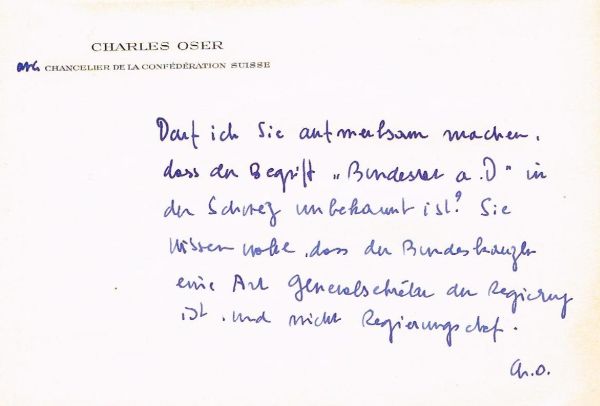 CHARLES OSER
CHANCELIER DE LA CONFÉDÉRATION SUISSE
Darf ich Sie aufmerksam machen,
dass der Begriff „Bundesrat a.D" in
der Schweiz unbekannt ist? Sie
wissen, dass der Bundeskanzler
eine Art Generalsekretär der Regierung
ist, und nicht Regierungschef.
Ch.O.